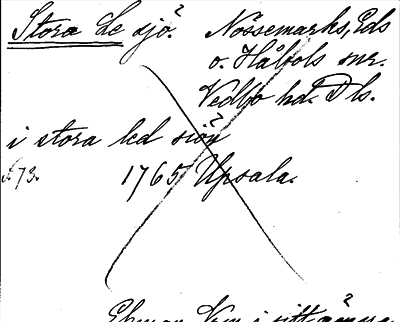 Stora Le sjö.? Nössemarks, Eds
o. Håbols snr.
Vedbo hd. Dls.
i stora led siön?
s. 73. 1765 Upsala.
Ekman Verm. i sitt ämne?